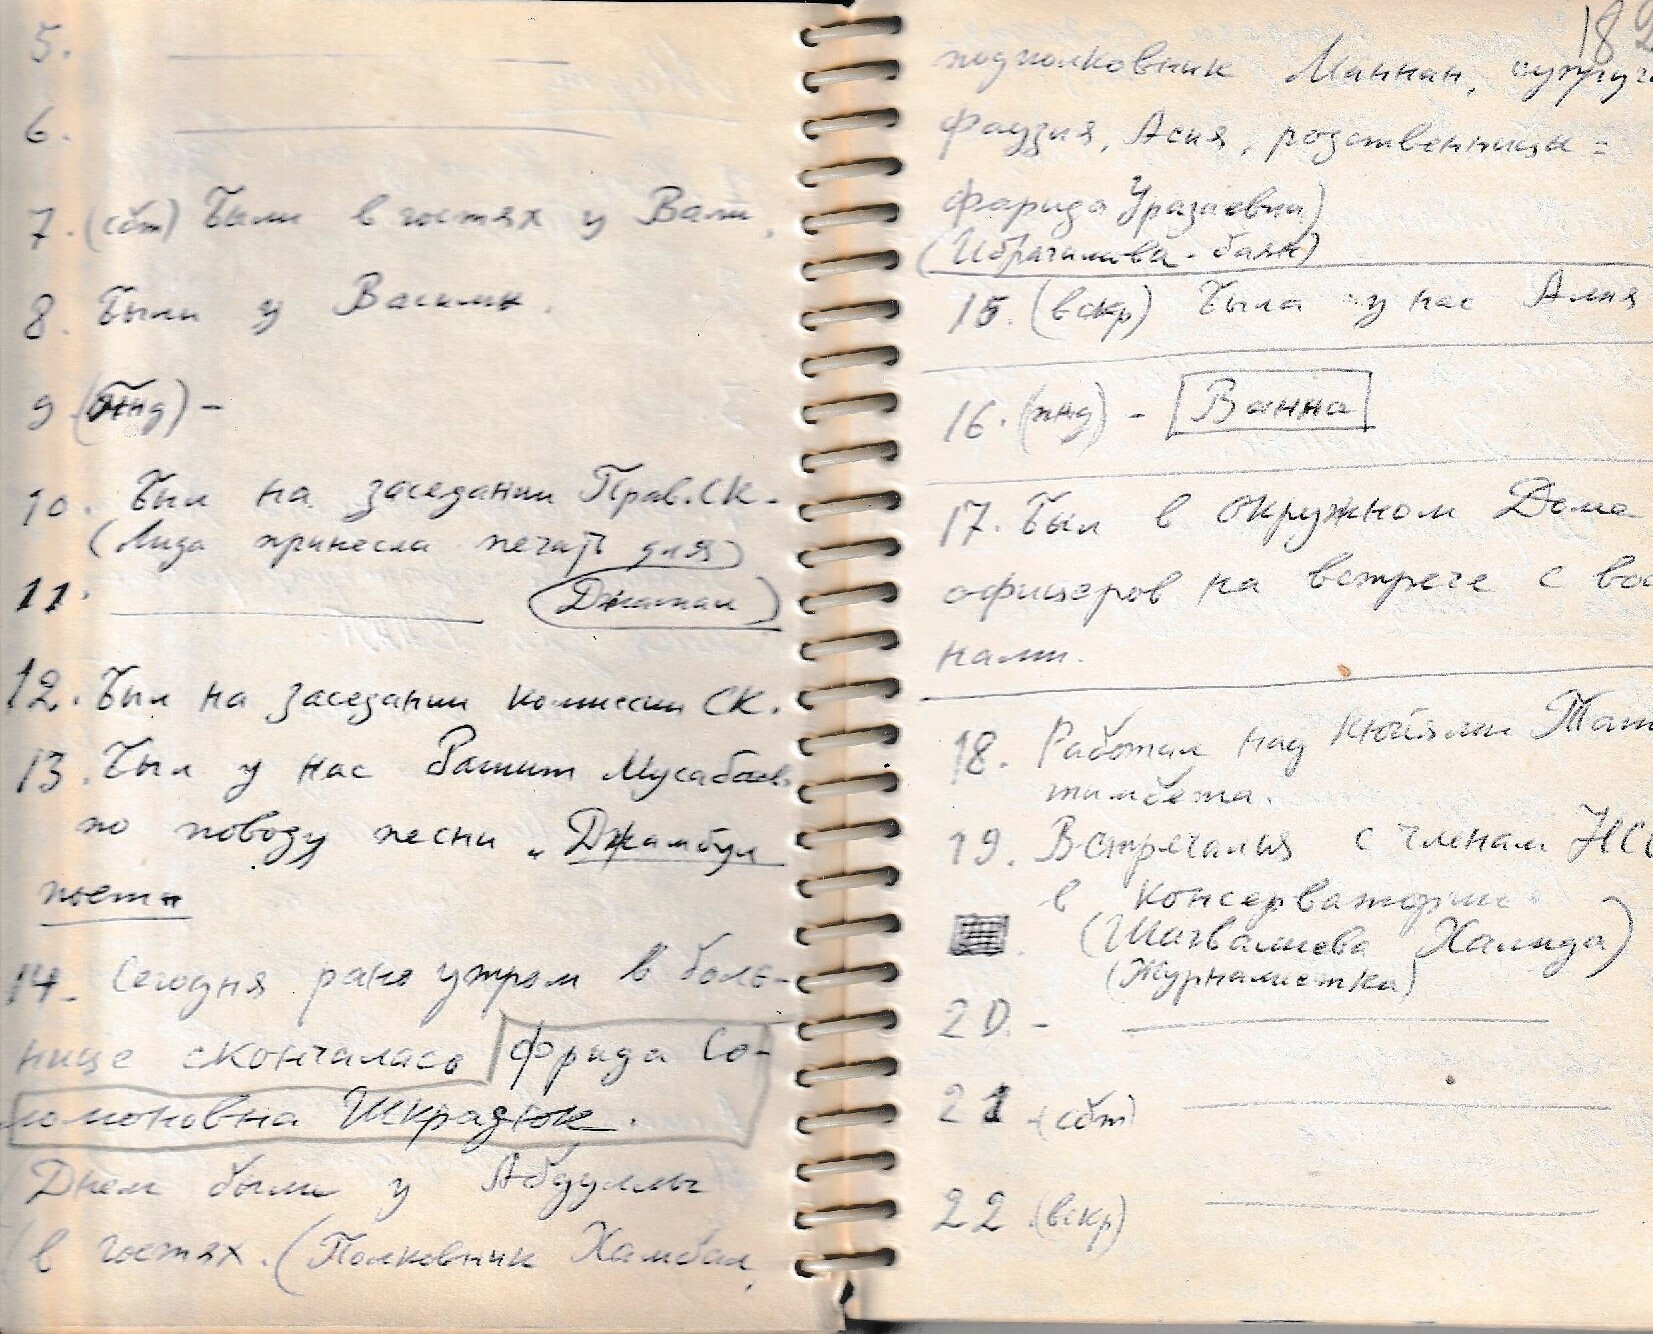 5.
6.
7. (сбт) Были в гостях у Вали,
8. Были у Василия.
9 (Пнд) -
10. Был на заседании Прав. СК.
(Лида принесла печать для)
11. Джамал
12. Был на заседании комиссии СК.
13. Был у нас Рашит Мусабаев
по поводу песни "Джамбул
поет"
14. Сегодня рано утром в боль-
нице скончалась Фрида Со-
ломоновна Шкрадюк.
Днем были у Абдуллы
в гостях. (Полковник Хамбал,
182
подполковник Маннан, супруга
Фаузия, Асия, родственницы =
Фарида Уразаевна)
(Ибрагимова - баян)
15. (вскр) Была у нас Алия
16. (пнд) - Ванна
17. Был в окружном Доме
офицеров на встрече с вое
нами.
18. Работал над кюйями Тат
тимбета.
19. Встречался с членам НСО
в консерватории
(Шагвалиева Халида)
(Журналистка)
20. -
21 (сбт)
22 (вскр)